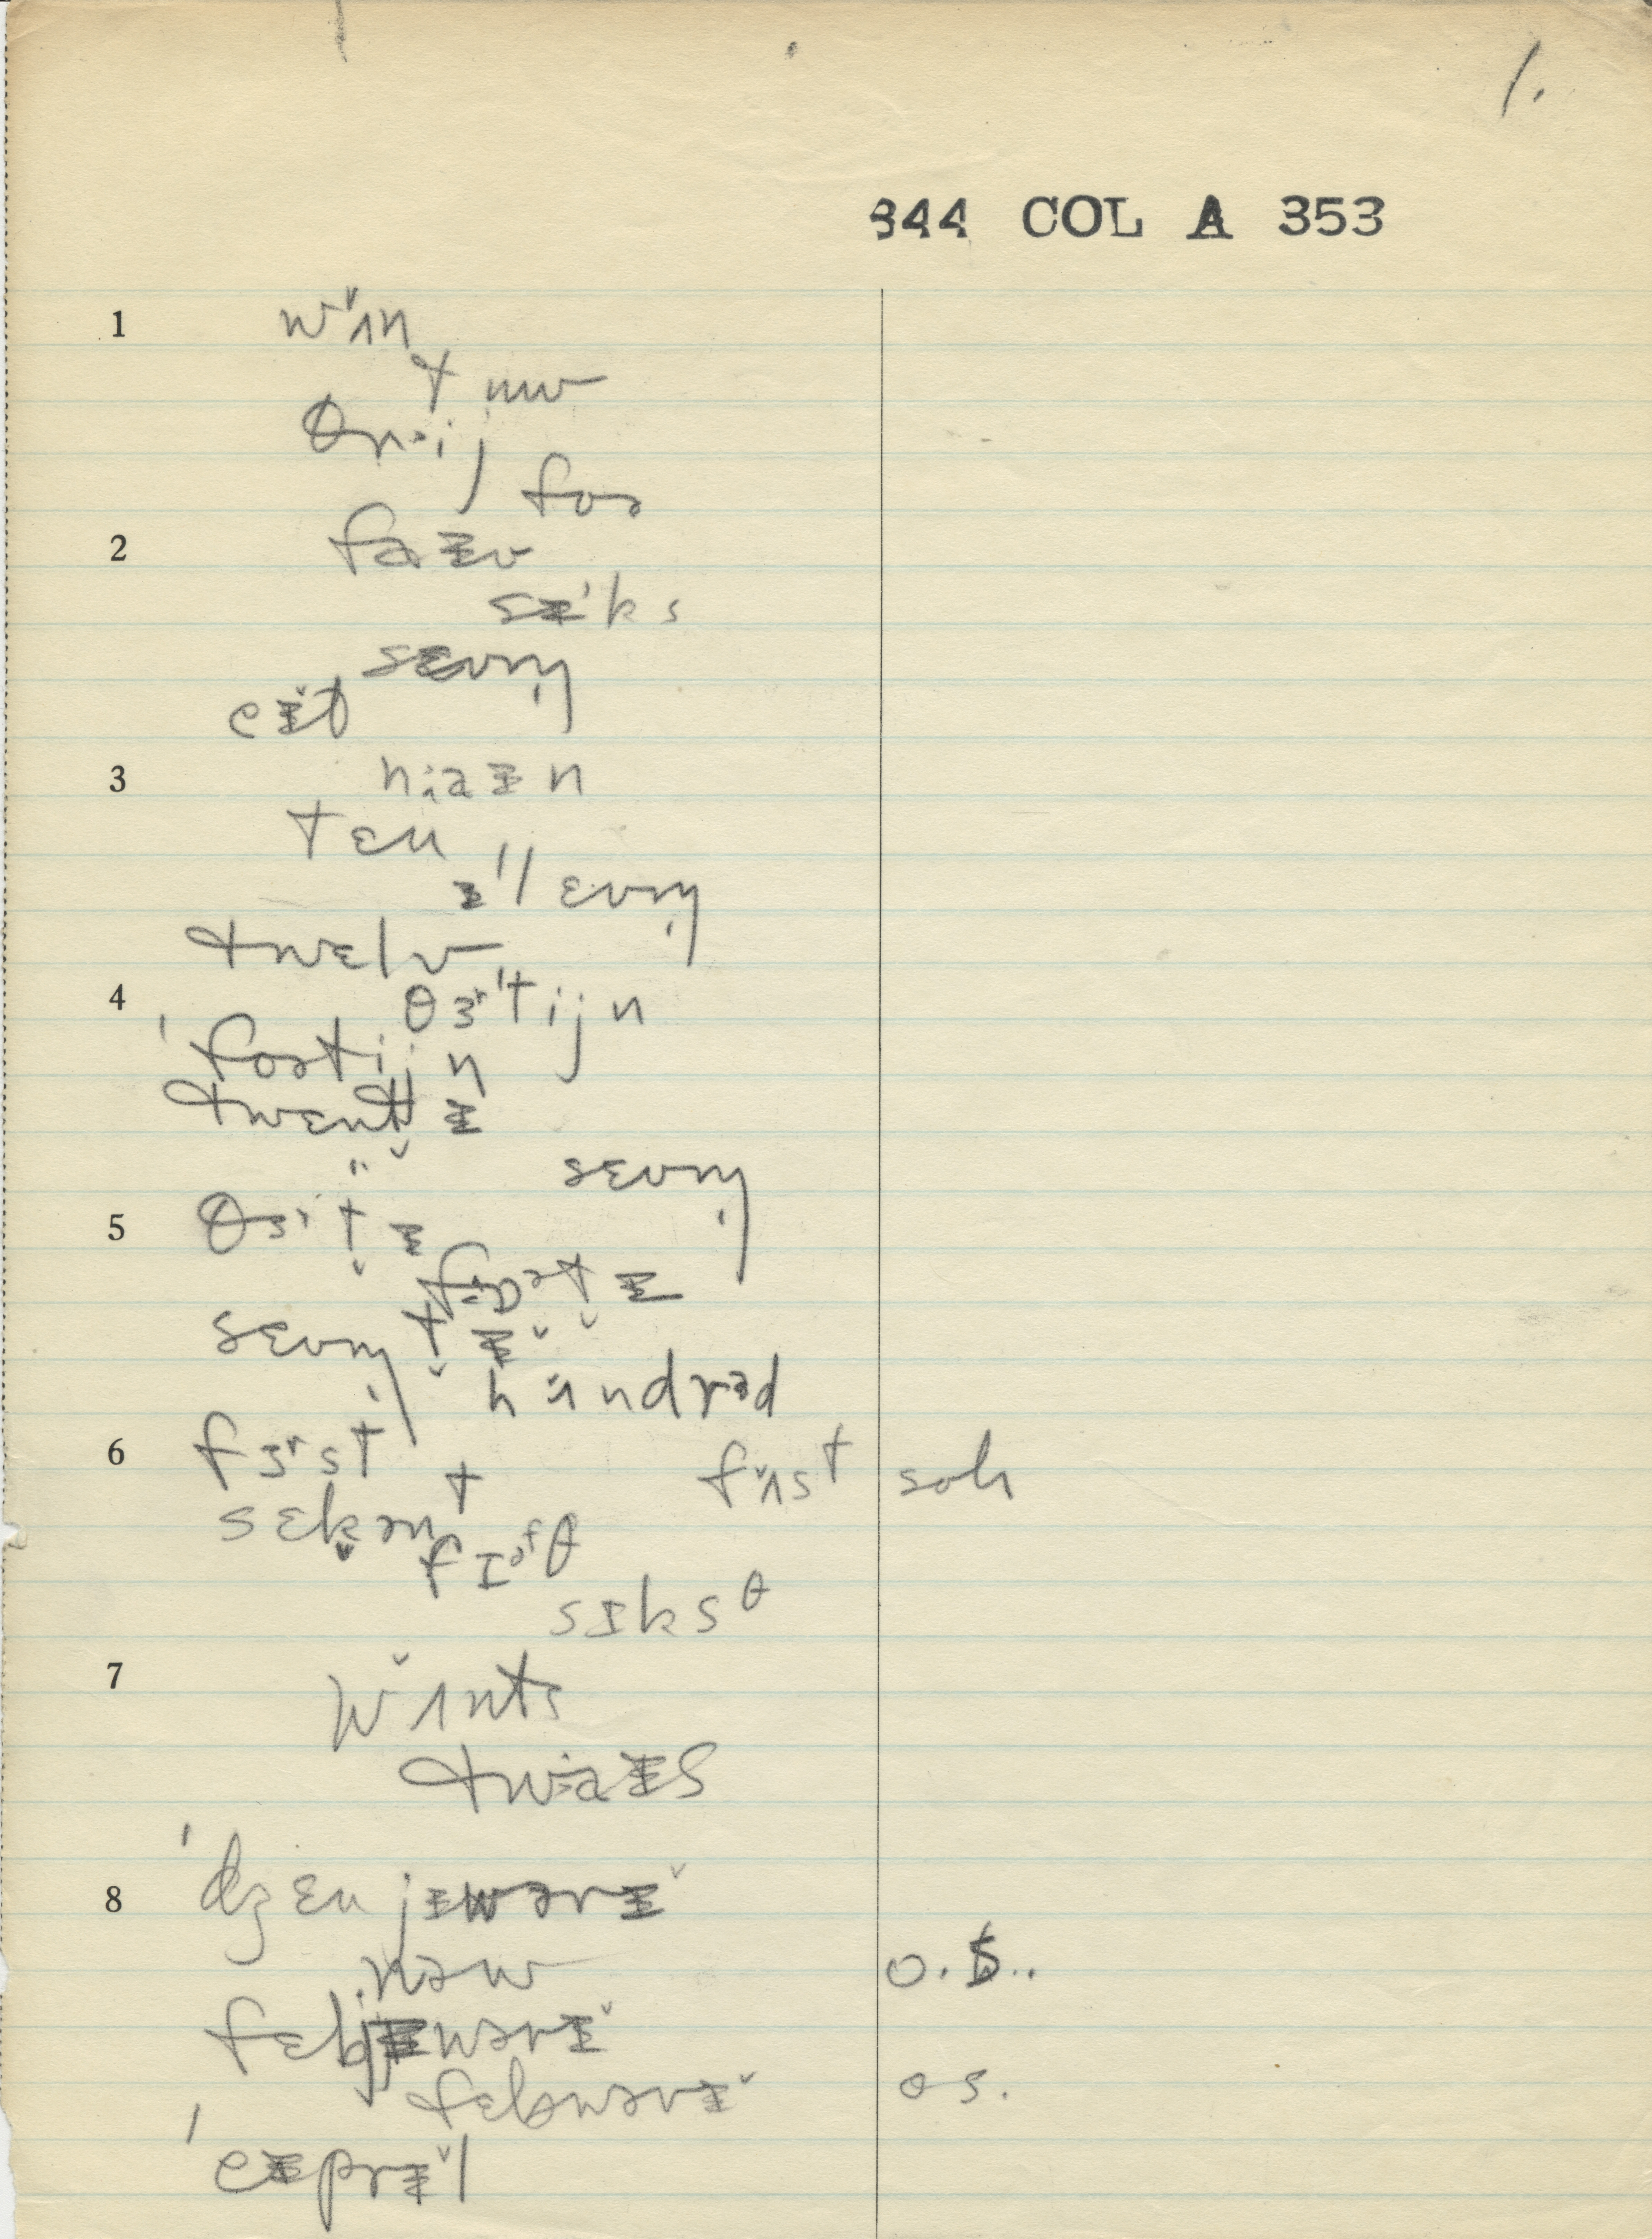 1.
844 COL A 353
1 wʌ̌n
tuw
θrɪij
foə
2 faɪv
sɪ'ks
sɛvn̩
eɪ̌t
3 naɪn
tɛn
ɪ'lɛvn̩
twɛlv
4 θɜr'tijn
'foətijn
twɛntt̬ɪ
sɛvn̩
5 θɜrt̬ɪ
fɒət̬ɪ
sɛvn̩t̬ɪ̌
hʌ̌ndrəd
6 fɜrst fʌ̌st soh
sɛk̬ənt
fɪəfθ
sɪksθ
7 wʌ̌nts
twaɪs
8 'dʒɛnjɪwərɪ̌
naw o.S..
fɛbjɪwərɪ̌
fɛbwərɪ̌ os.
'eɪprɪ̌l